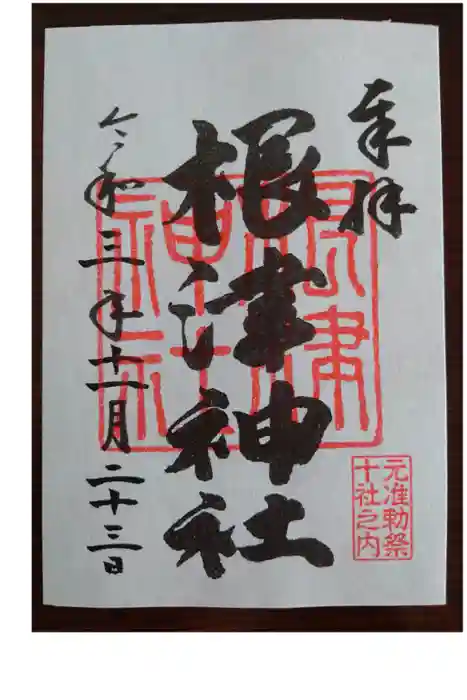 奉拝
根津神社
根津
神社
元准勅祭
十社之内
令和三年十一月二十三日